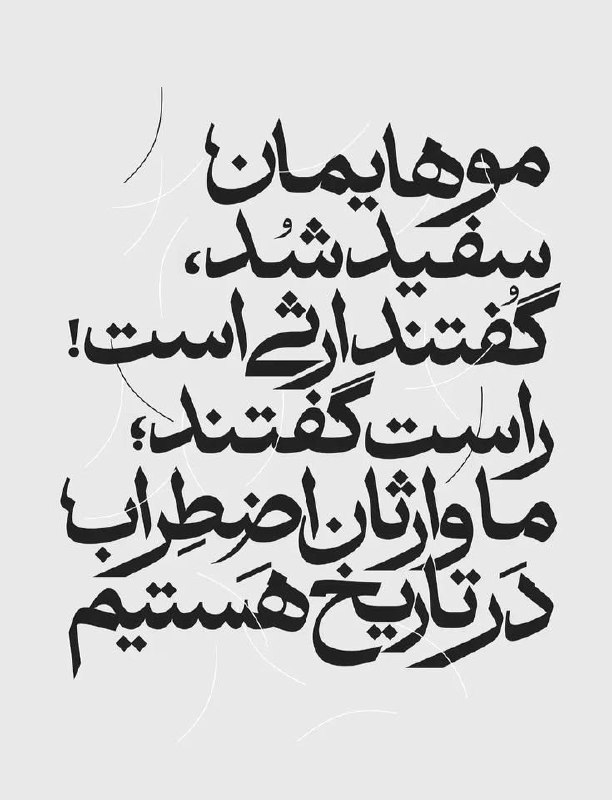 موهایمان
سفید شُد،
گُفتند ارثی است!
راست گفتند؛
ما وارثان اضطِراب
دَر تاریخ هَستیم